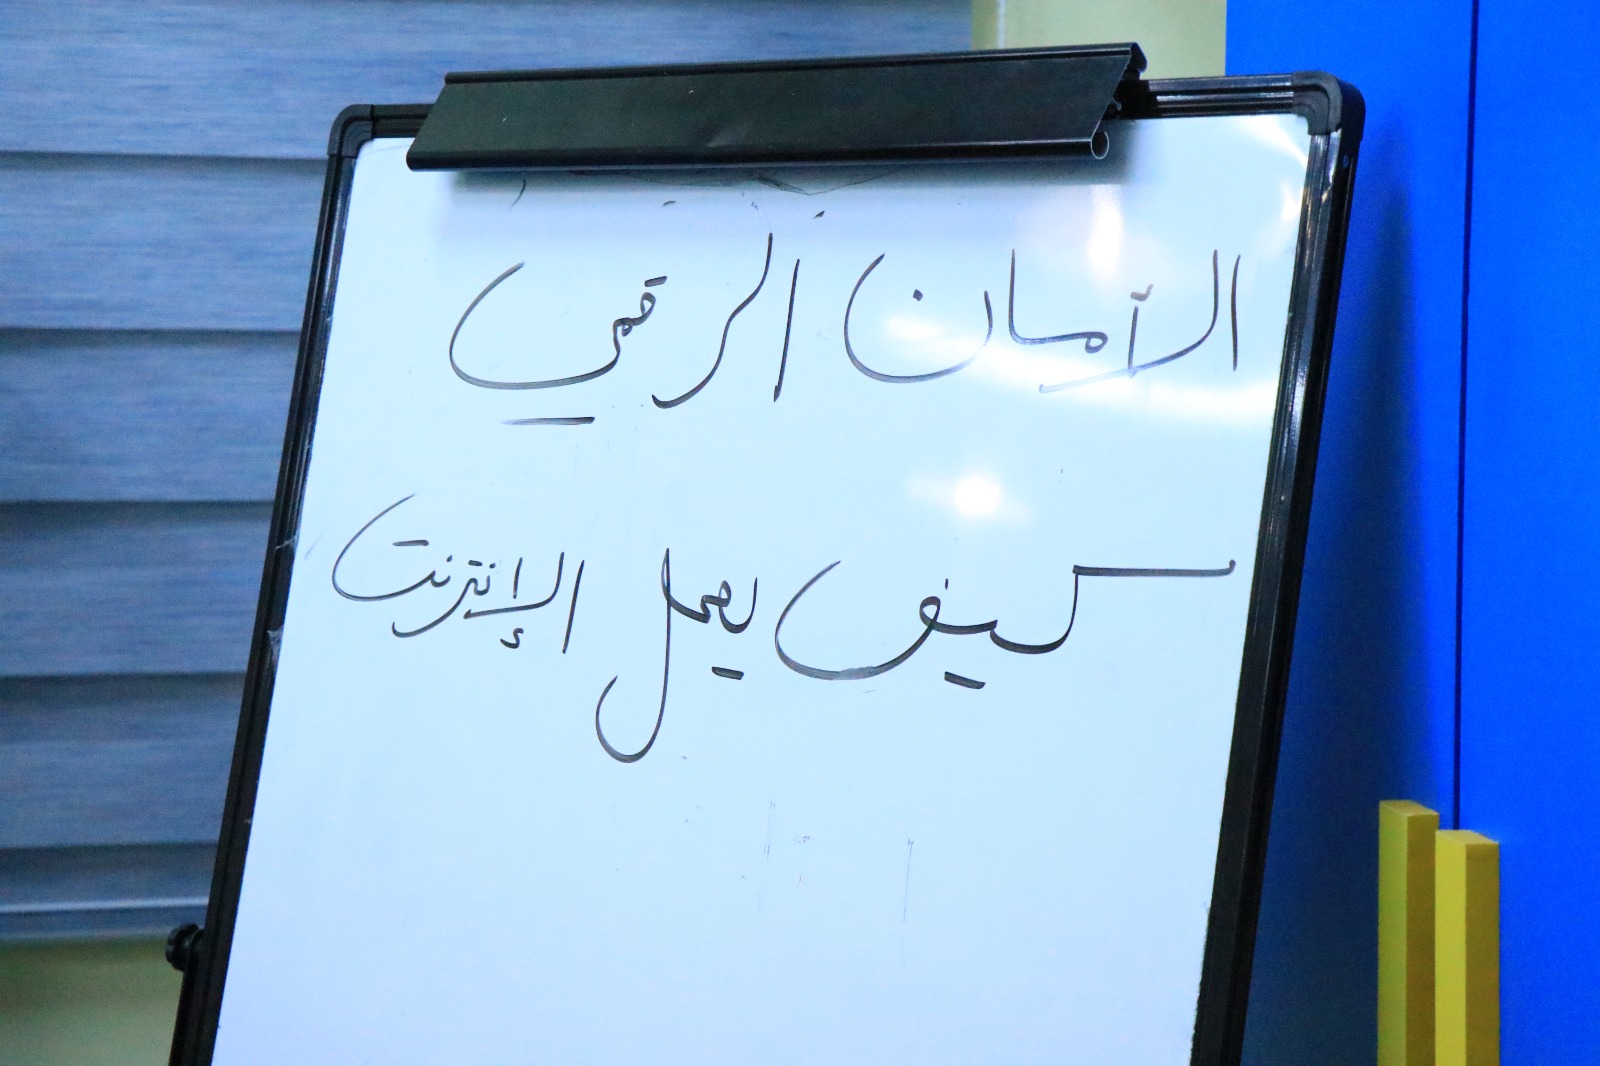 الأمان الرقمي
كيف يعمل الإنترنت